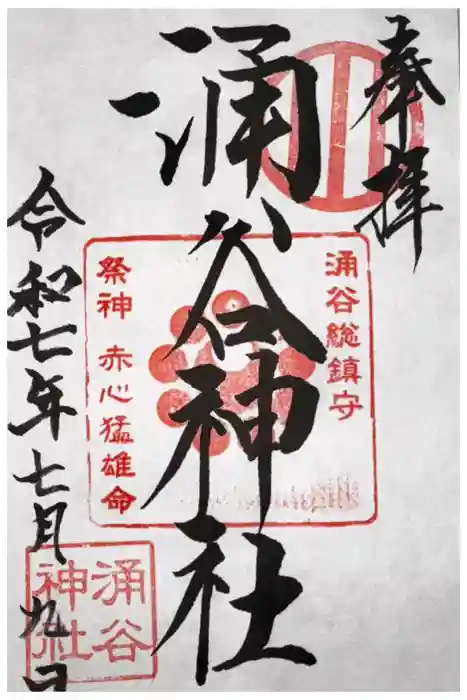 奉拝
涌谷神社
涌谷総鎮守
祭神 赤心猛雄命
令和七年七月九日
涌谷
神社